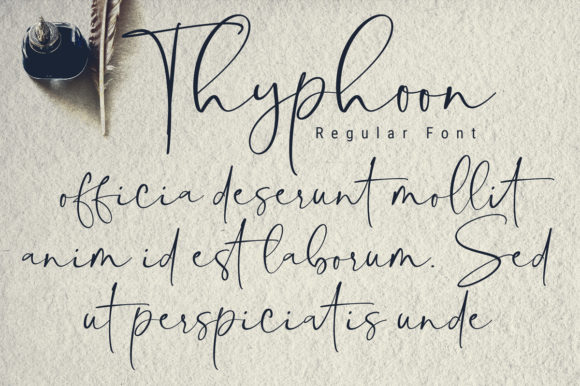 Thyphoon
Regular Font
officia deserunt mollit
anim id est laborum. Sed
ut perspiciatis unde